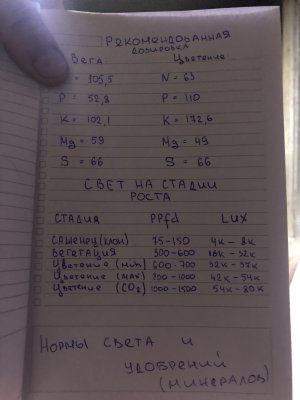 Рекомендованная
дозировка
Вега: Цветение
= 105,5 N = 63
P = 52,8 P = 110
K = 102,1 K = 172,6
Mg = 59 Mg = 49
S = 66 S = 66
Свет на стадии
роста
Стадия PPfd Lux
Саженец (клон) 75-150 4к - 8к
Вегетация 300-600 16к - 32к
Цветение (min) 600-700 32к - 37к
Цветение (max) 800-1000 42к - 54к
Цветение (CO2) 1000-1500 54к - 80к
Нормы света и
удобрений
(минералов)